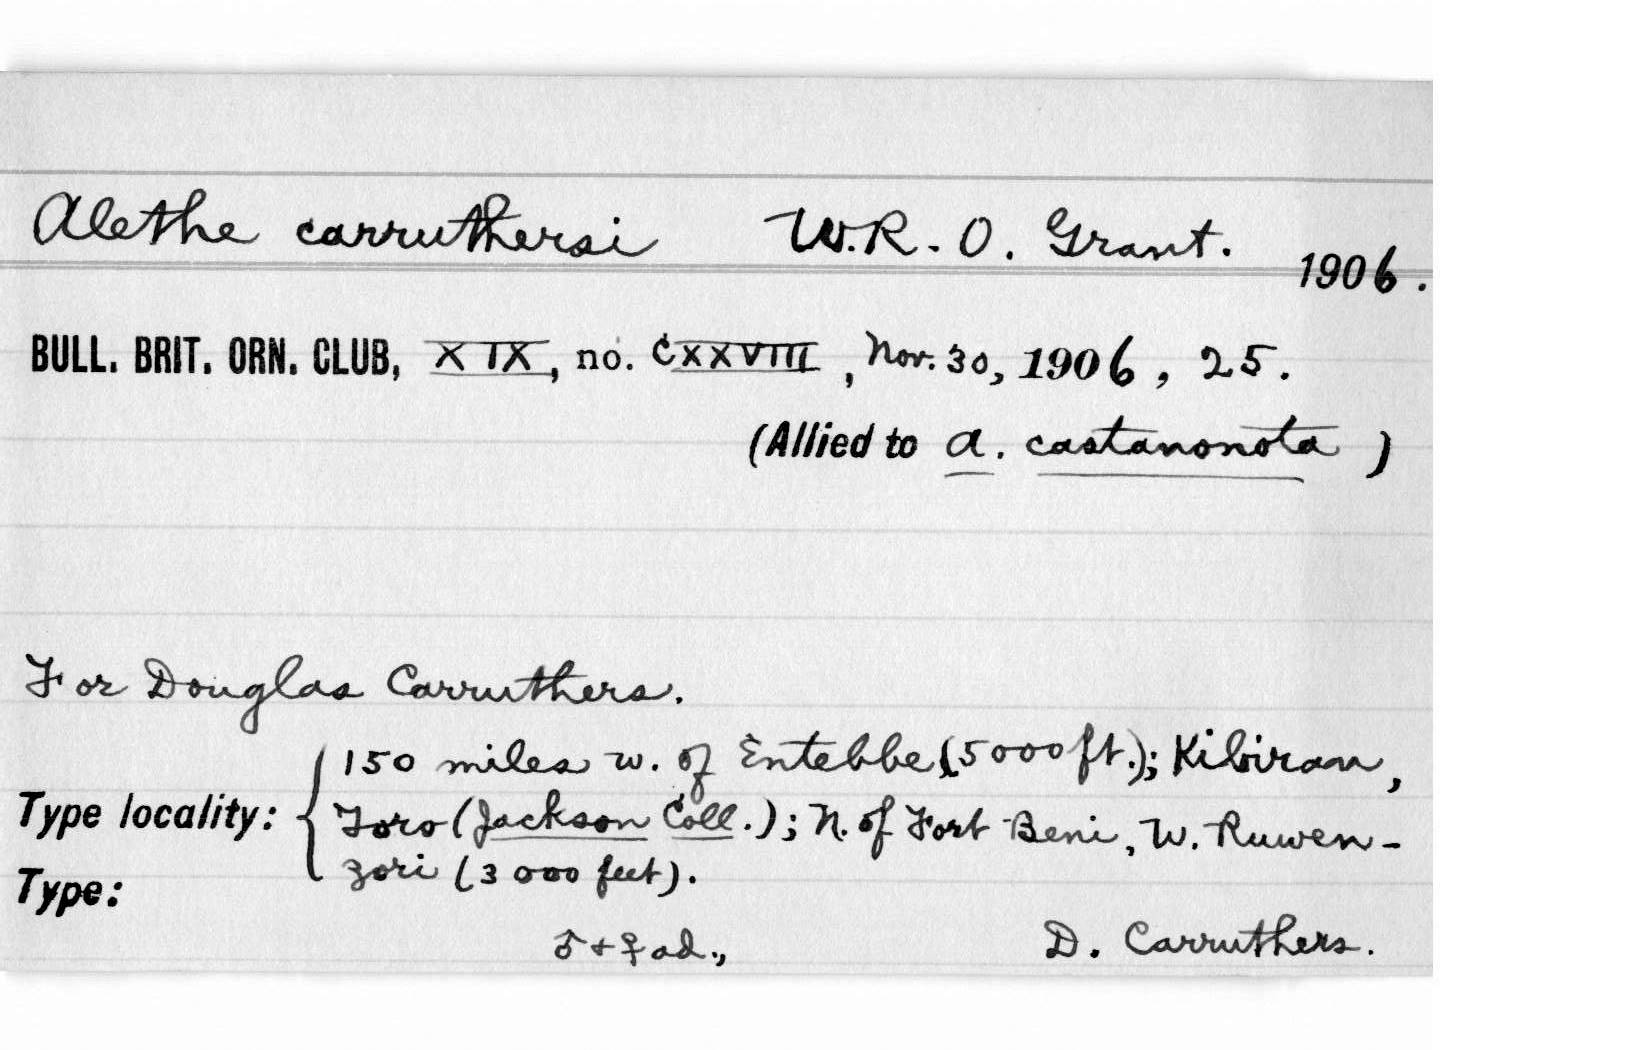 Alethe carruthersi W.R.O. Grant. 1906.
BULL. BRIT. ORN. CLUB, XIX, no. CXXVIII, Nov. 30, 1906, 25.
(Allied to A. castanonota)
For Douglas Carruthers.
150 miles w. of Entebbe (5000 ft.); Kibirau,
Type locality: Toro (Jackson Coll.); N. of Fort Beni, W. Ruwen-
zori (3000 feet).
Type:
♂ + ♀ ad., D. Carruthers.